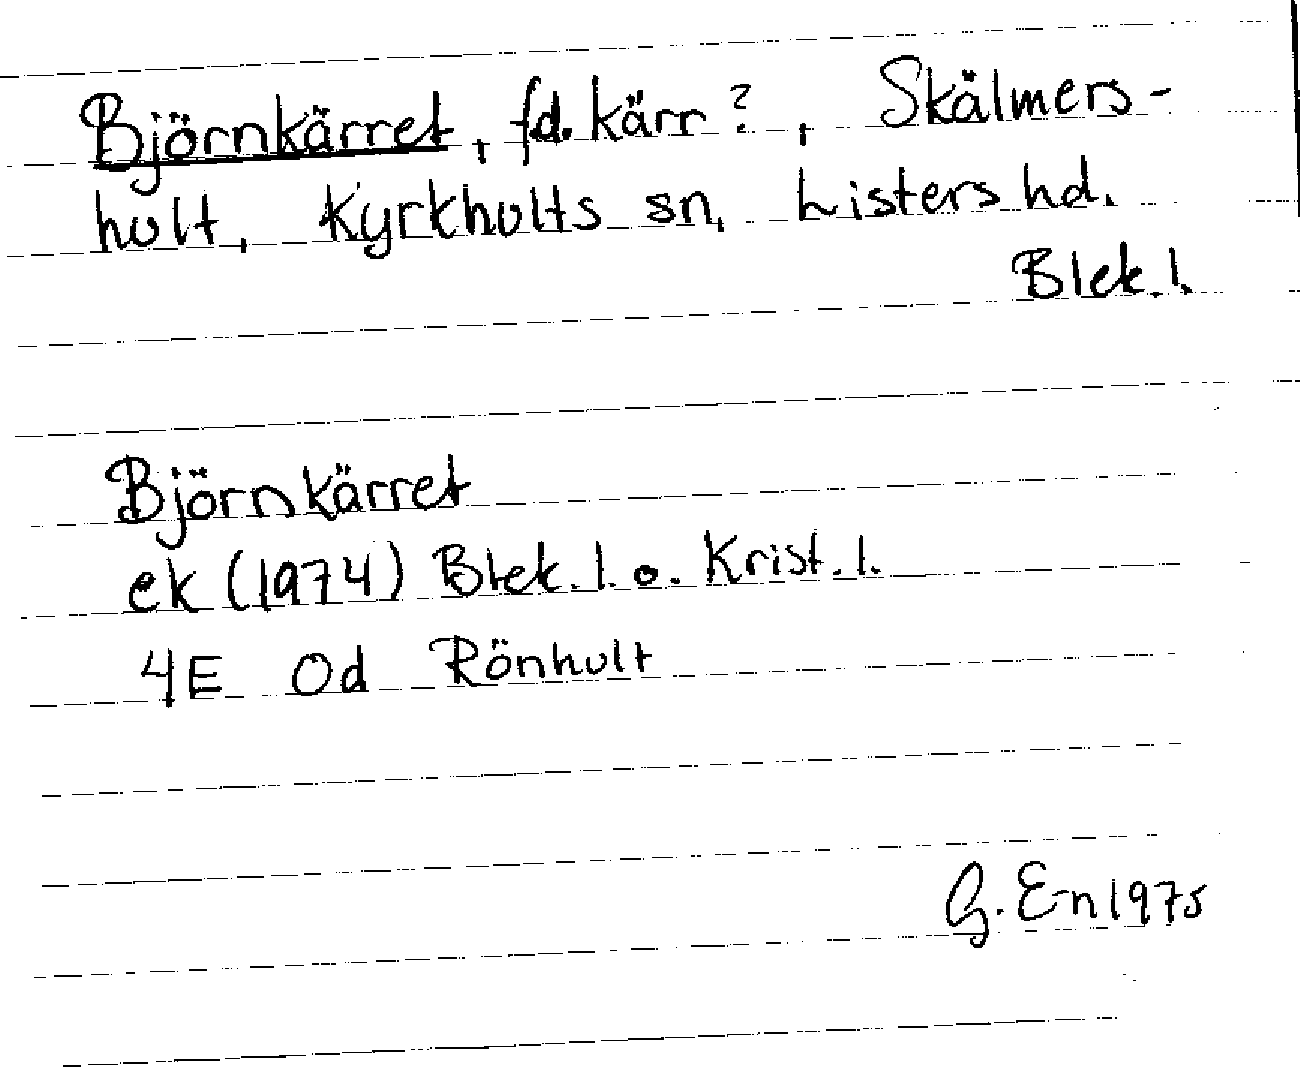 Björnkärret, fd. kärr?, Skälmers-
hult, Kyrkhults sn, Listers hd.
Blek. l.
Björnkärret
ek (1974) Blek. l. o. Krist. l.
4E Od Rönhult
G. E-n 1975